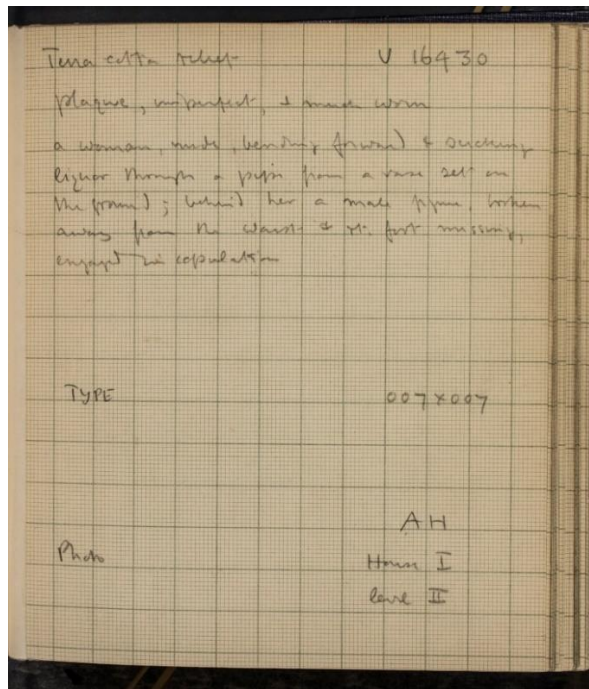 Terra cotta relief U 16430
plaque, imperfect, & much worn
a woman, nude, bending forward & sucking
liquor through a pipe from a vase set on
the ground; behind her a male figure, broken
away from the waist & rt. foot missing,
engaged in copulation
TYPE 007×007
AH
Photo House I
level II